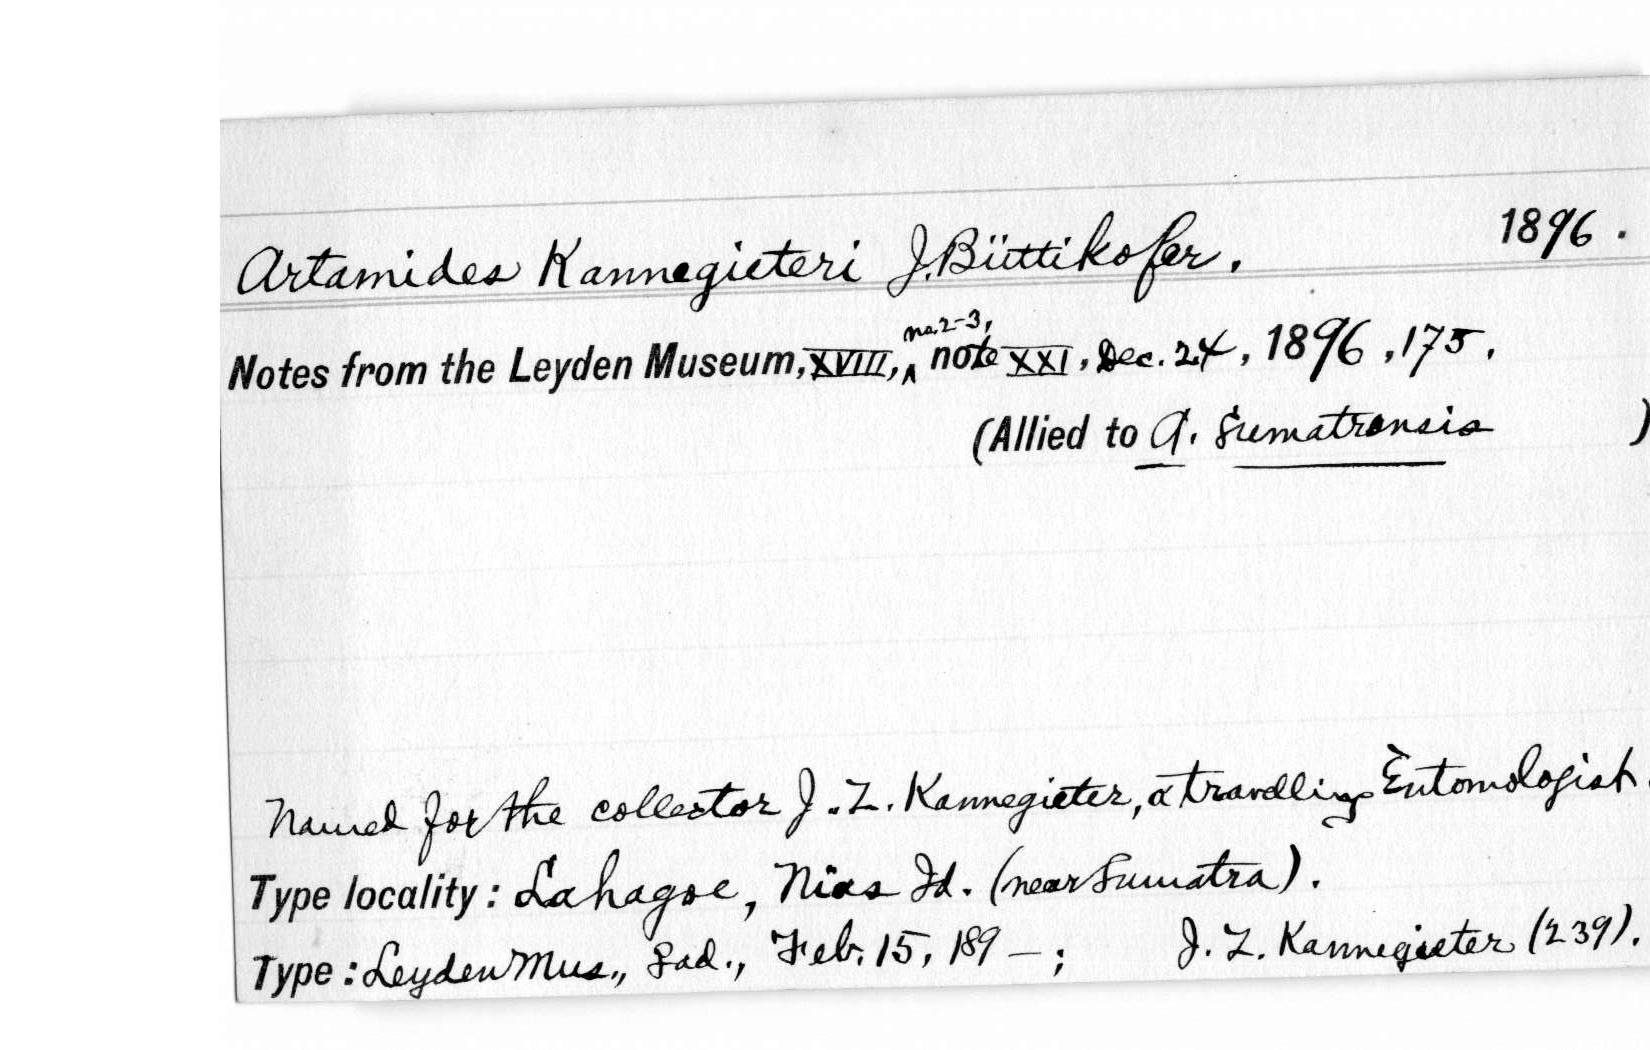 Artamides Kannegieteri J. Büttikofer. 1896.
Notes from the Leyden Museum, XVIII, no. 2-3, note XXI, Dec. 24, 1896, 175.
(Allied to A. Sumatrensis )
Named for the collector J. Z. Kannegieter, a travelling Entomologist.
Type locality: Lahagoe, Nias Id. (near Sumatra).
Type: Leyden Mus., ad., Feb. 15, 189-; J. Z. Kannegieter (239).